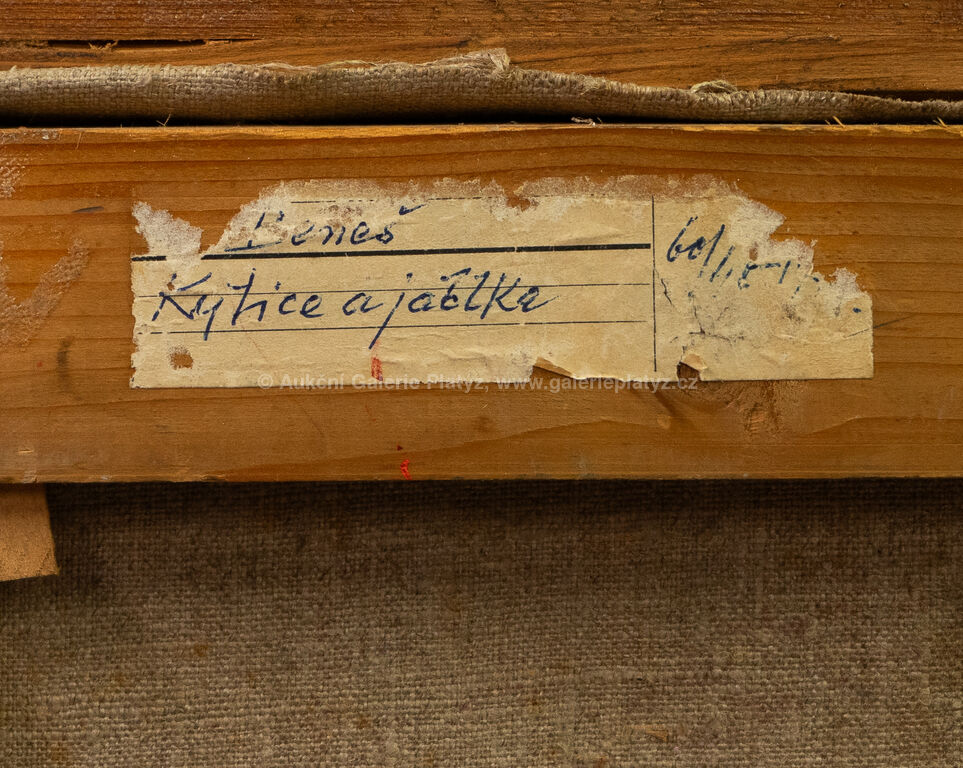 Beneš
Kytice a jablka
© Aukční Galerie Platýz, www.galerieplatyz.cz